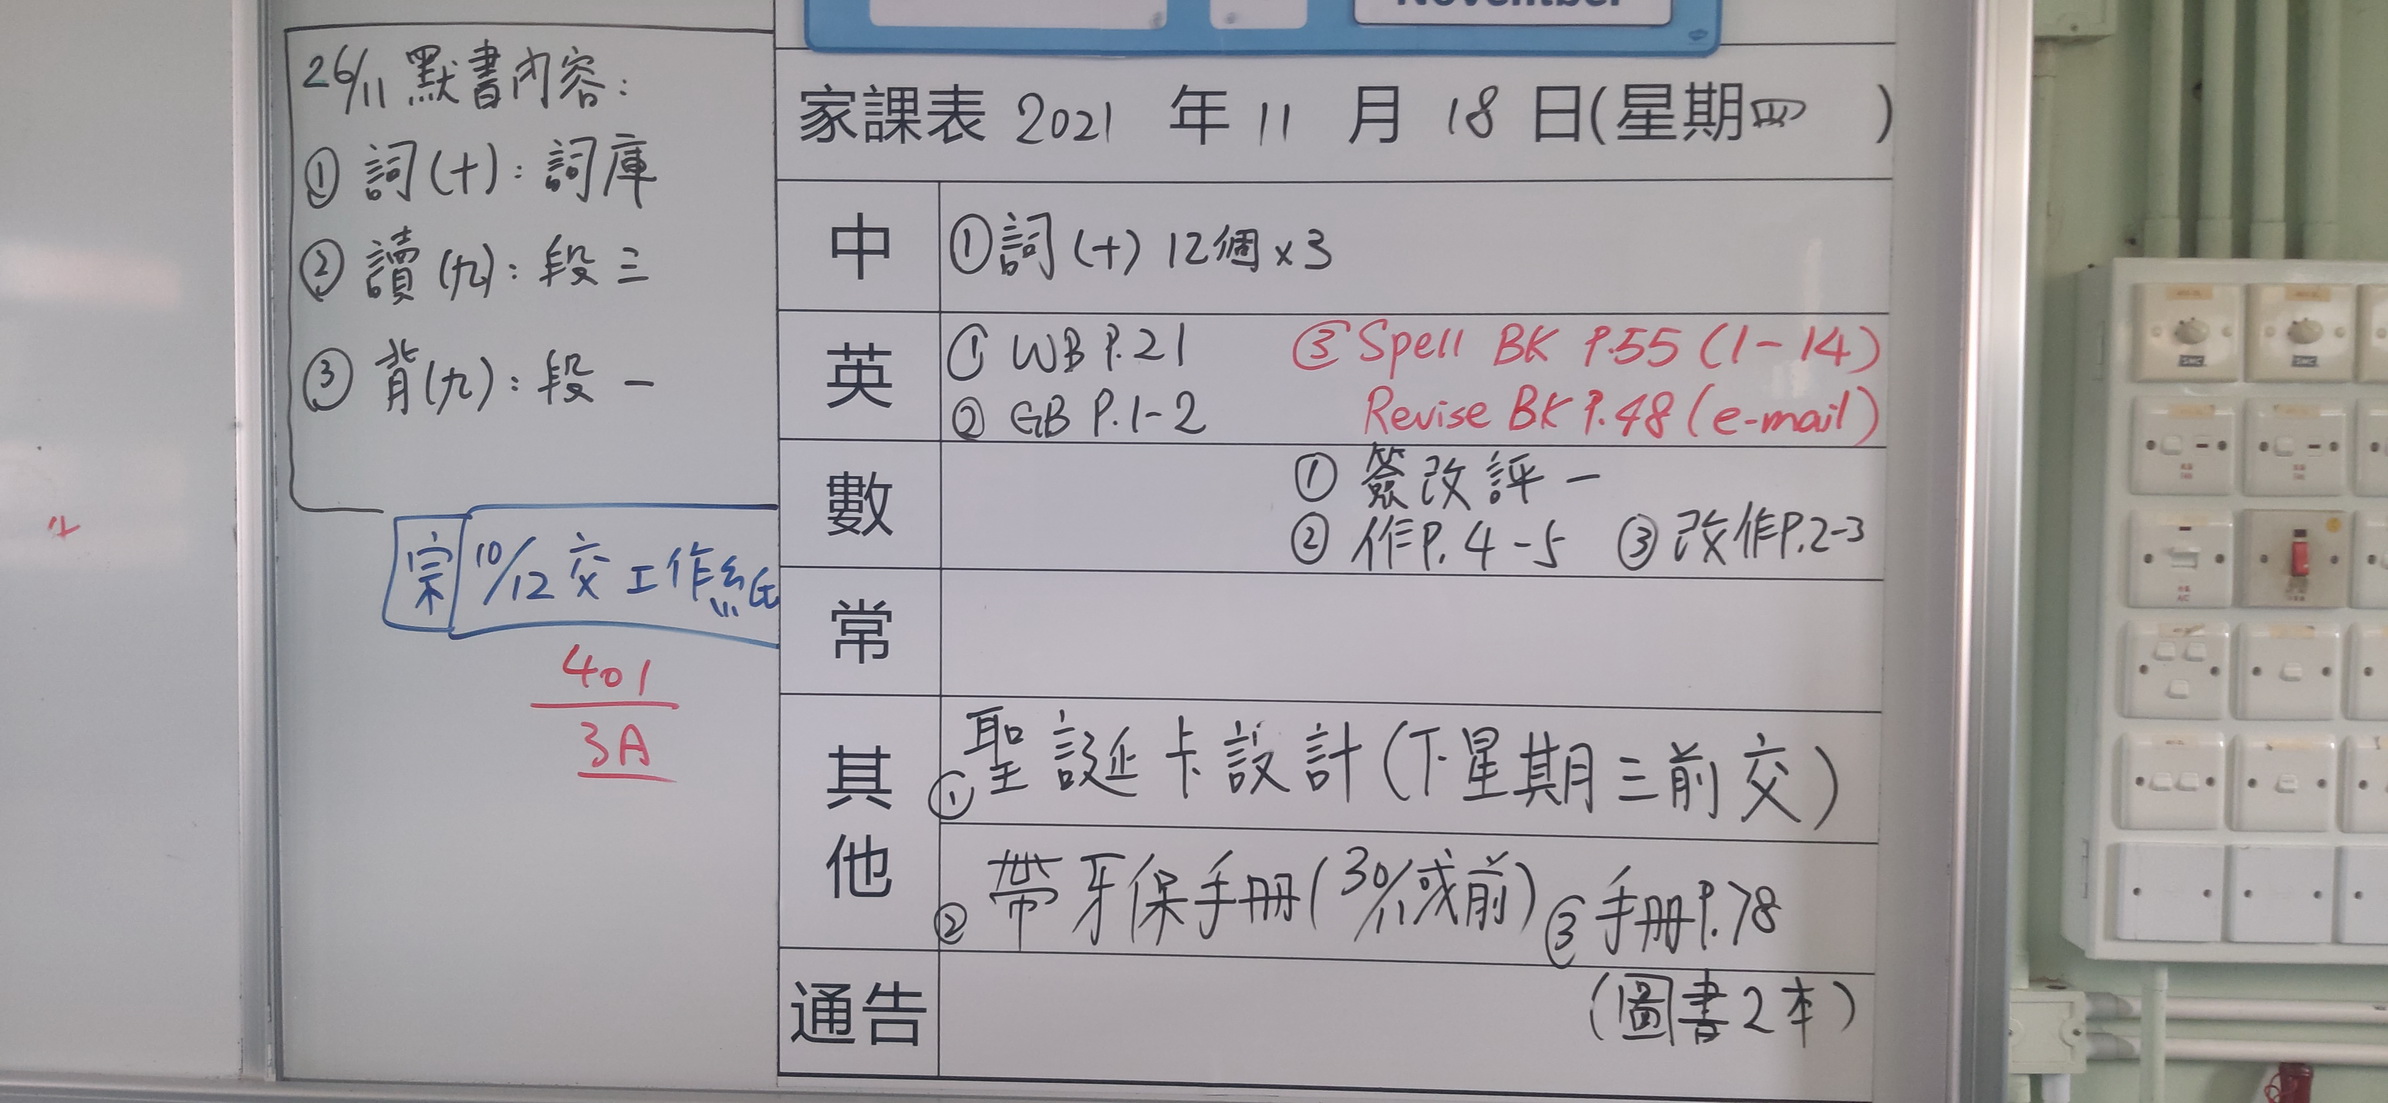 November
26/11 默書內容：
① 詞(十)：詞庫
② 讀(九)：段三
③ 背(九)：段一
宗 10/12 交工作紙
401
3A
家課表 2021 年 11 月 18 日(星期四 )
中 ①詞(十) 12個×3
英 ① WB P.21 ③ Spell BK P.55 (1-14)
② GB P.1-2 Revise BK P.48 (e-mail)
數 ① 簽改評一
② 作P.4-5 ③ 改作P.2-3
常
其他 ① 聖誕卡設計(下星期三前交)
② 帶牙保手冊(30/11或前) ③ 手冊P.78
通告 (圖書2本)